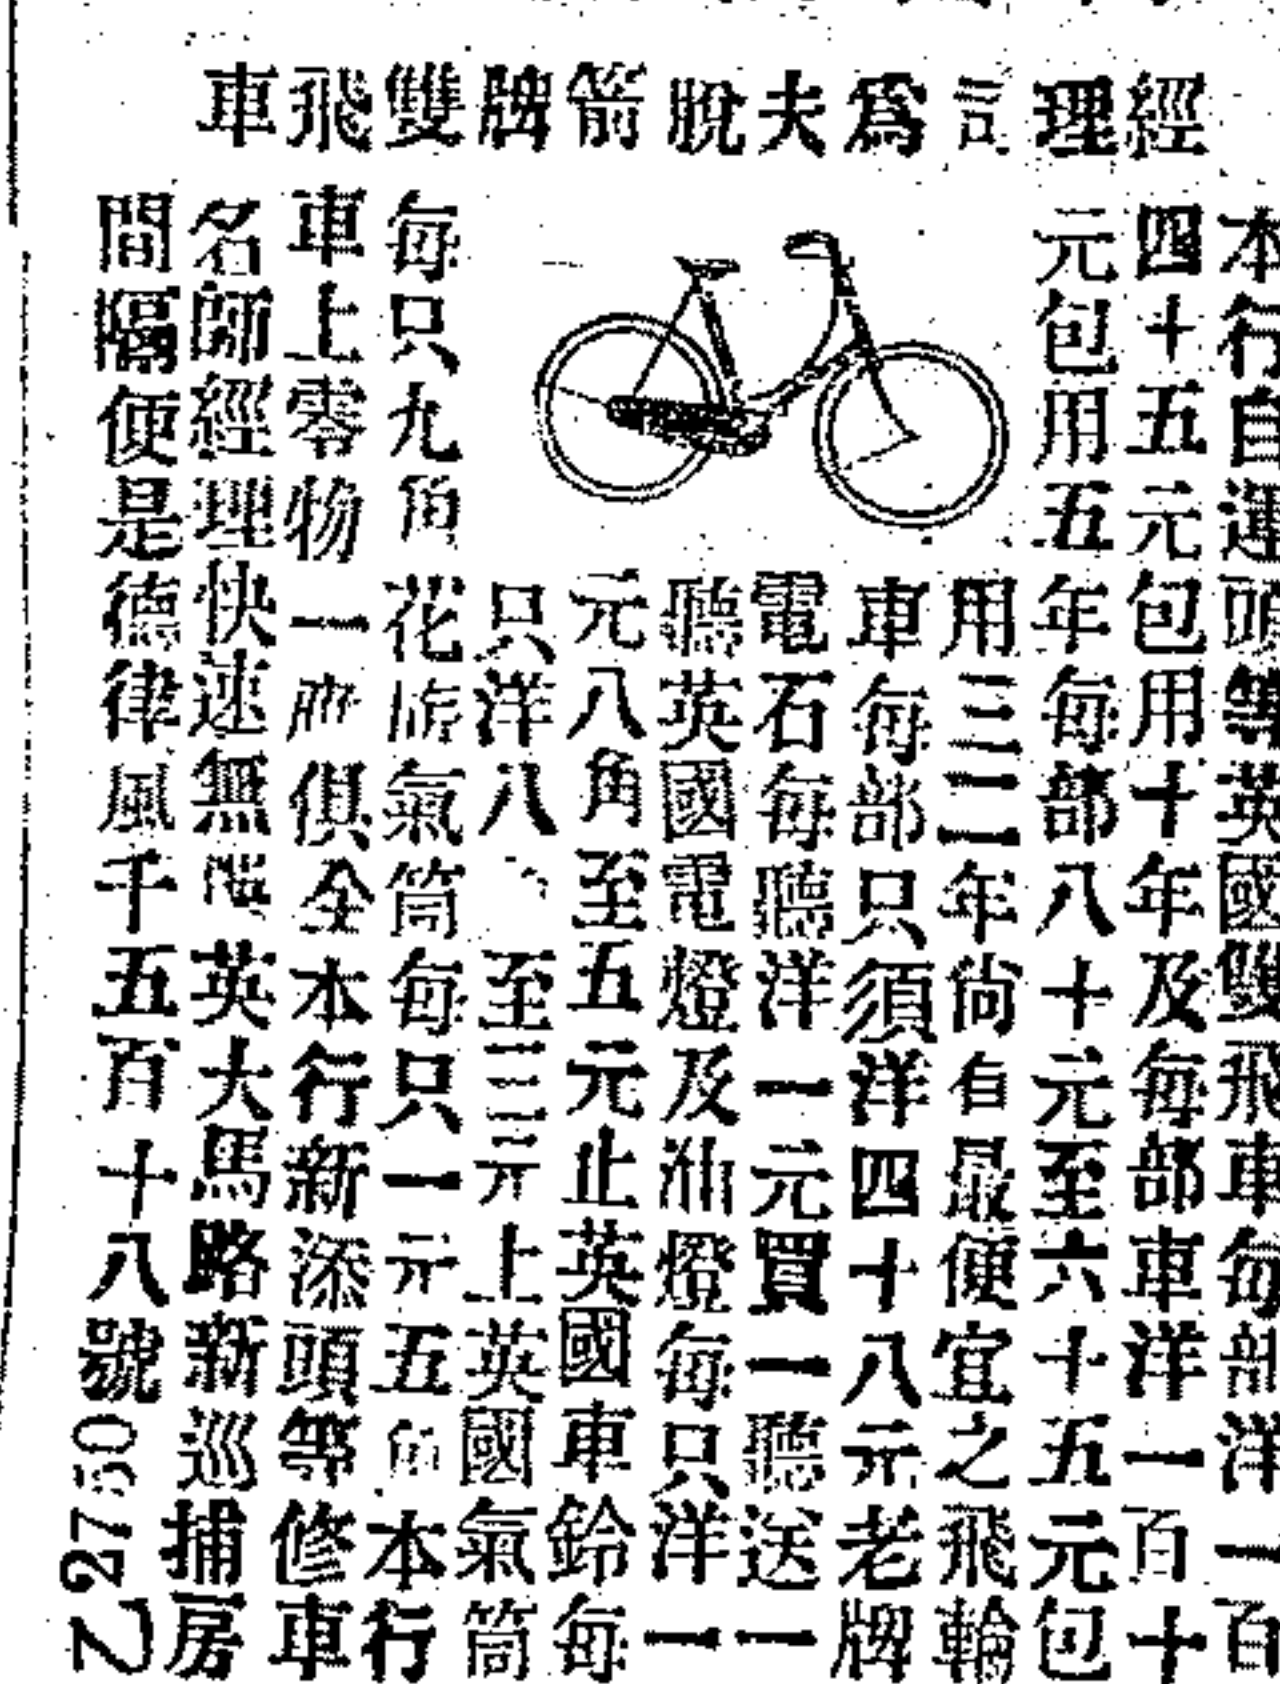 經理言為夫脫箭牌雙飛車
本行自運頭等英國雙飛車每部洋一百
四十五元包用十年及每部車洋一百十
元包用五年每部八十元至六十五元包
用三二年尚有最便宜之飛輪
車每部只須洋四十八元老牌
電石每聽洋一元買一聽送一
聽英國電燈及油燈每只洋一
元八角至五元止英國車鈴每
只洋八 至三元上英國氣筒
每只九角花旂氣筒每只一元五角本行
車上零物一齊俱全本行新添頭等修車
名師經理快速無 英大馬路新巡捕房
間隔便是德律風千五百十八號
Z2750